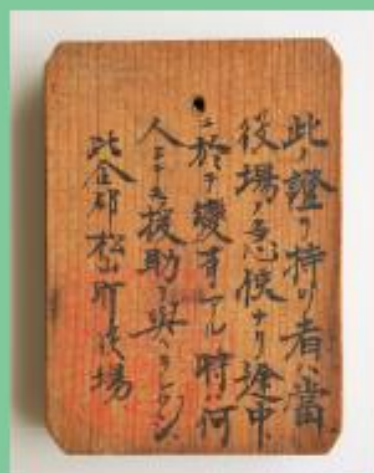 此ノ證ヲ持ツ者ハ當
役場ノ急使ナリ途中
ニ於テ變事アル時ハ何
人ニテモ援助ヲ與ヘラレタシ
比企郡松山町役場